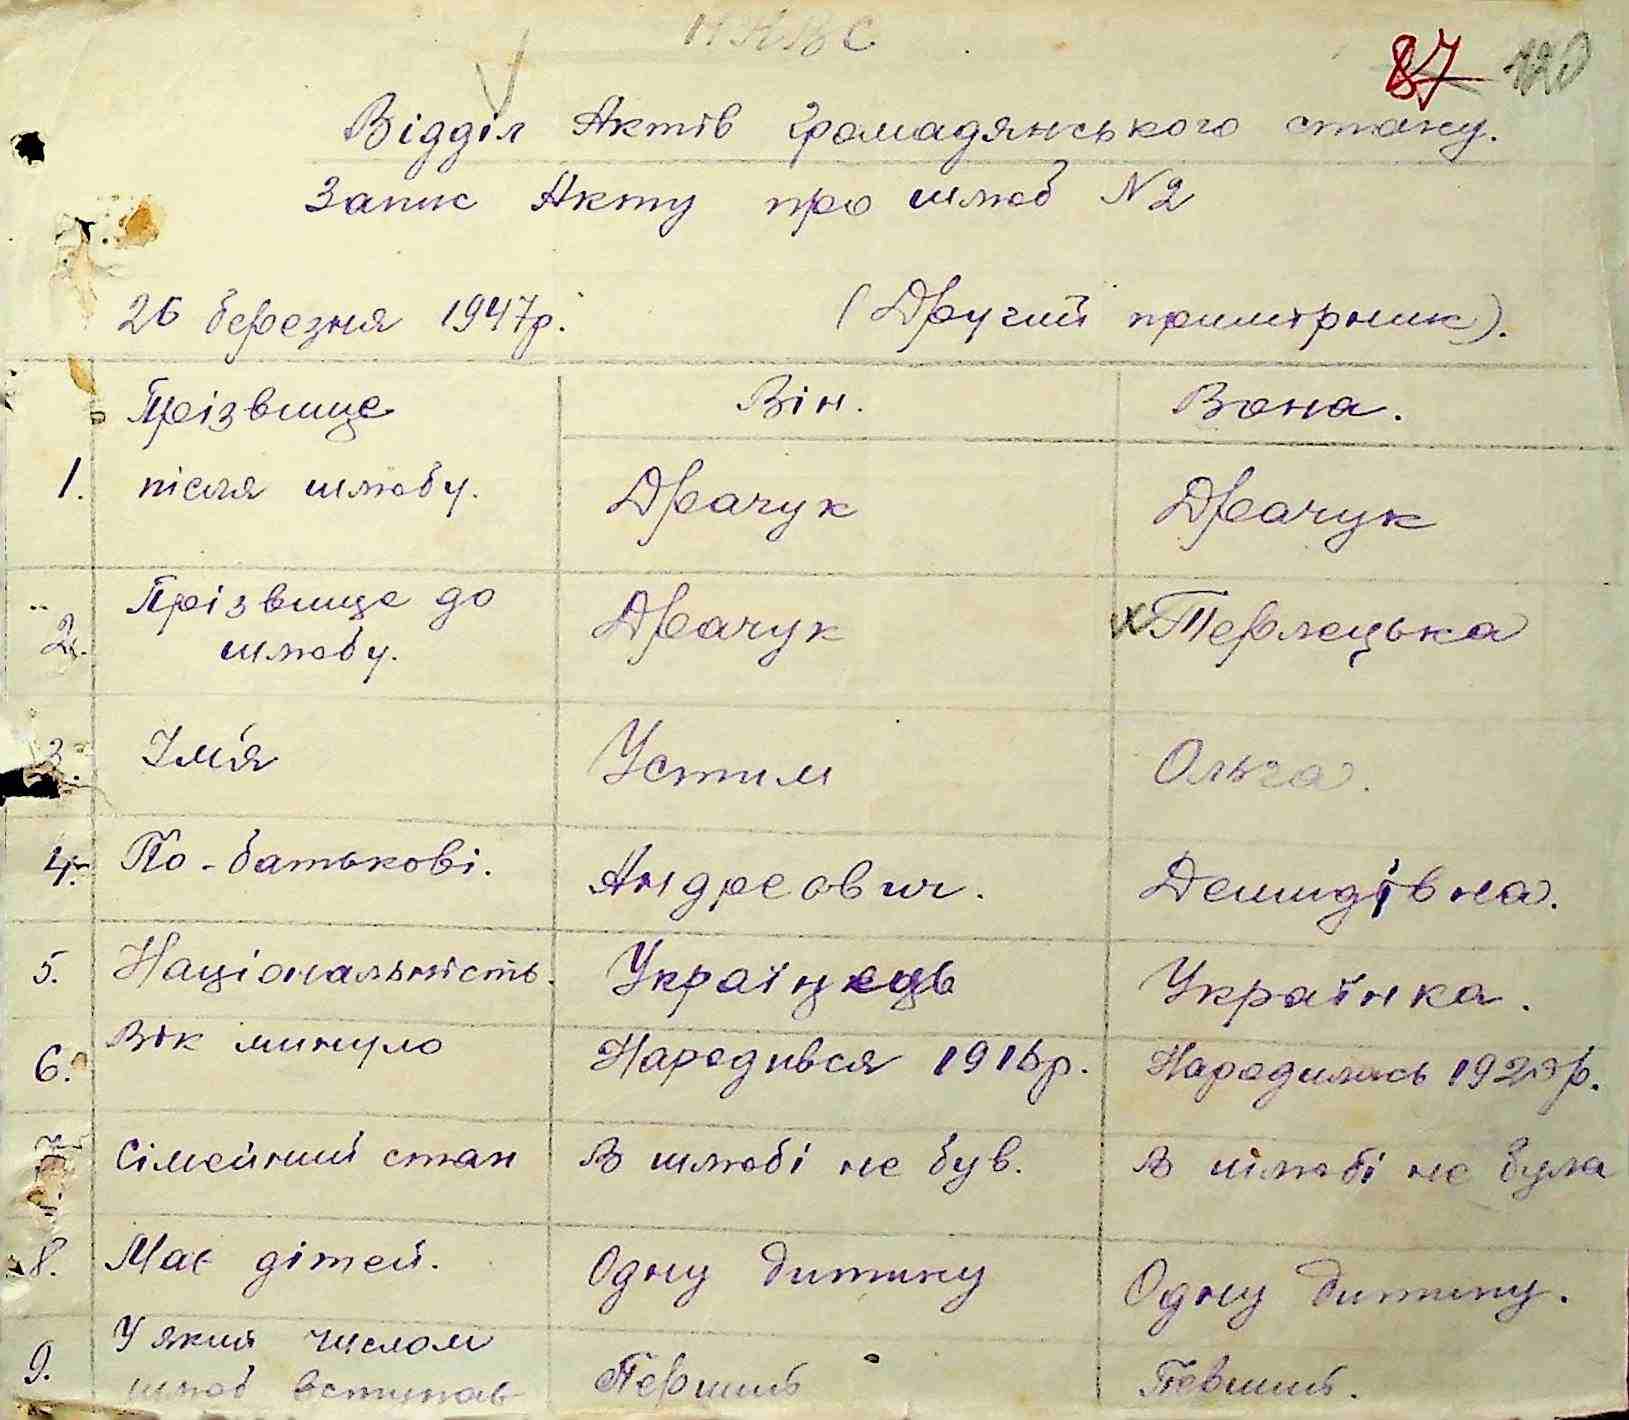 ННВС
87 120
Відділ Актів громадянського стану.
Запис Акту про шлюб N2
26 березня 1947р. (Другий примірник).
Прізвище Він. Вона.
1. після шлюбу. Драчук Драчук
2. Прізвище до Драчук х Терлецька
шлюбу.
3. Імя Устим Ольга.
4. По-батькові. Андреович. Демидівна.
5. Національність. Українець Українка.
6. Вік минуло Народився р. Народилась р.
7. Сімейний стан В шлюбі не був. В шлюбі не була
8. Має дітей. Одну дитину Одну дитину.
9. У який числом Першиь Певшиь.
шлюб вступав